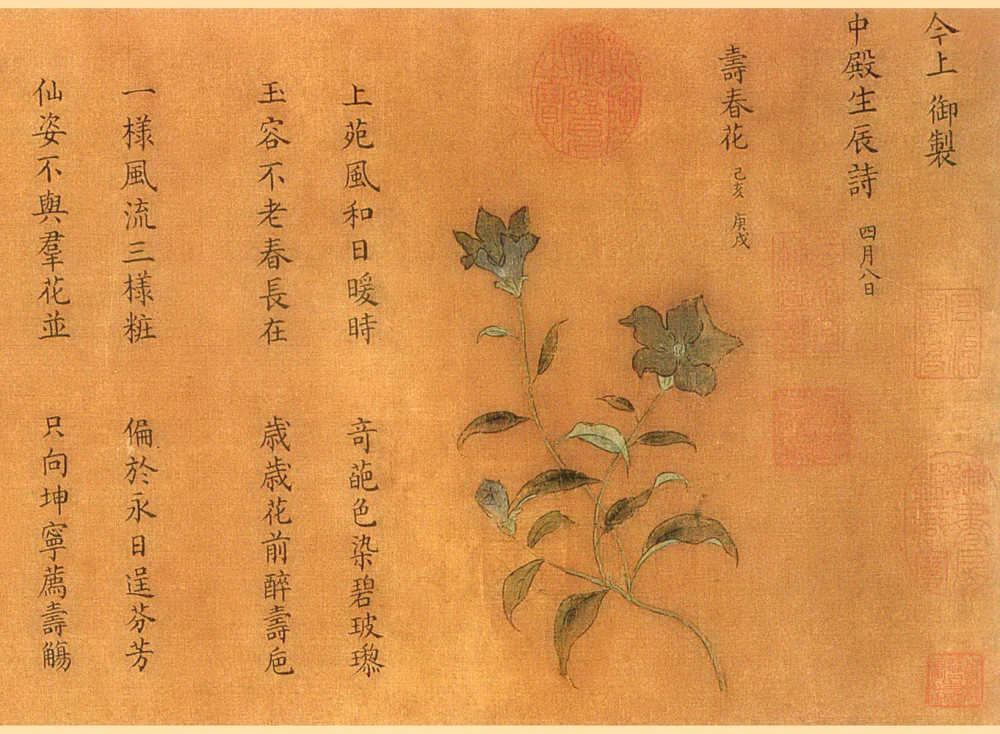 今上御製
中殿生辰詩 四月八日
壽春花 己亥 庚戌
上苑風和日暖時 奇葩色染碧玻瓈
玉容不老春長在 歳歳花前醉壽巵
一樣風流三樣粧 偏於永日逞芬芳
仙姿不與羣花並 只向坤寧薦壽觴